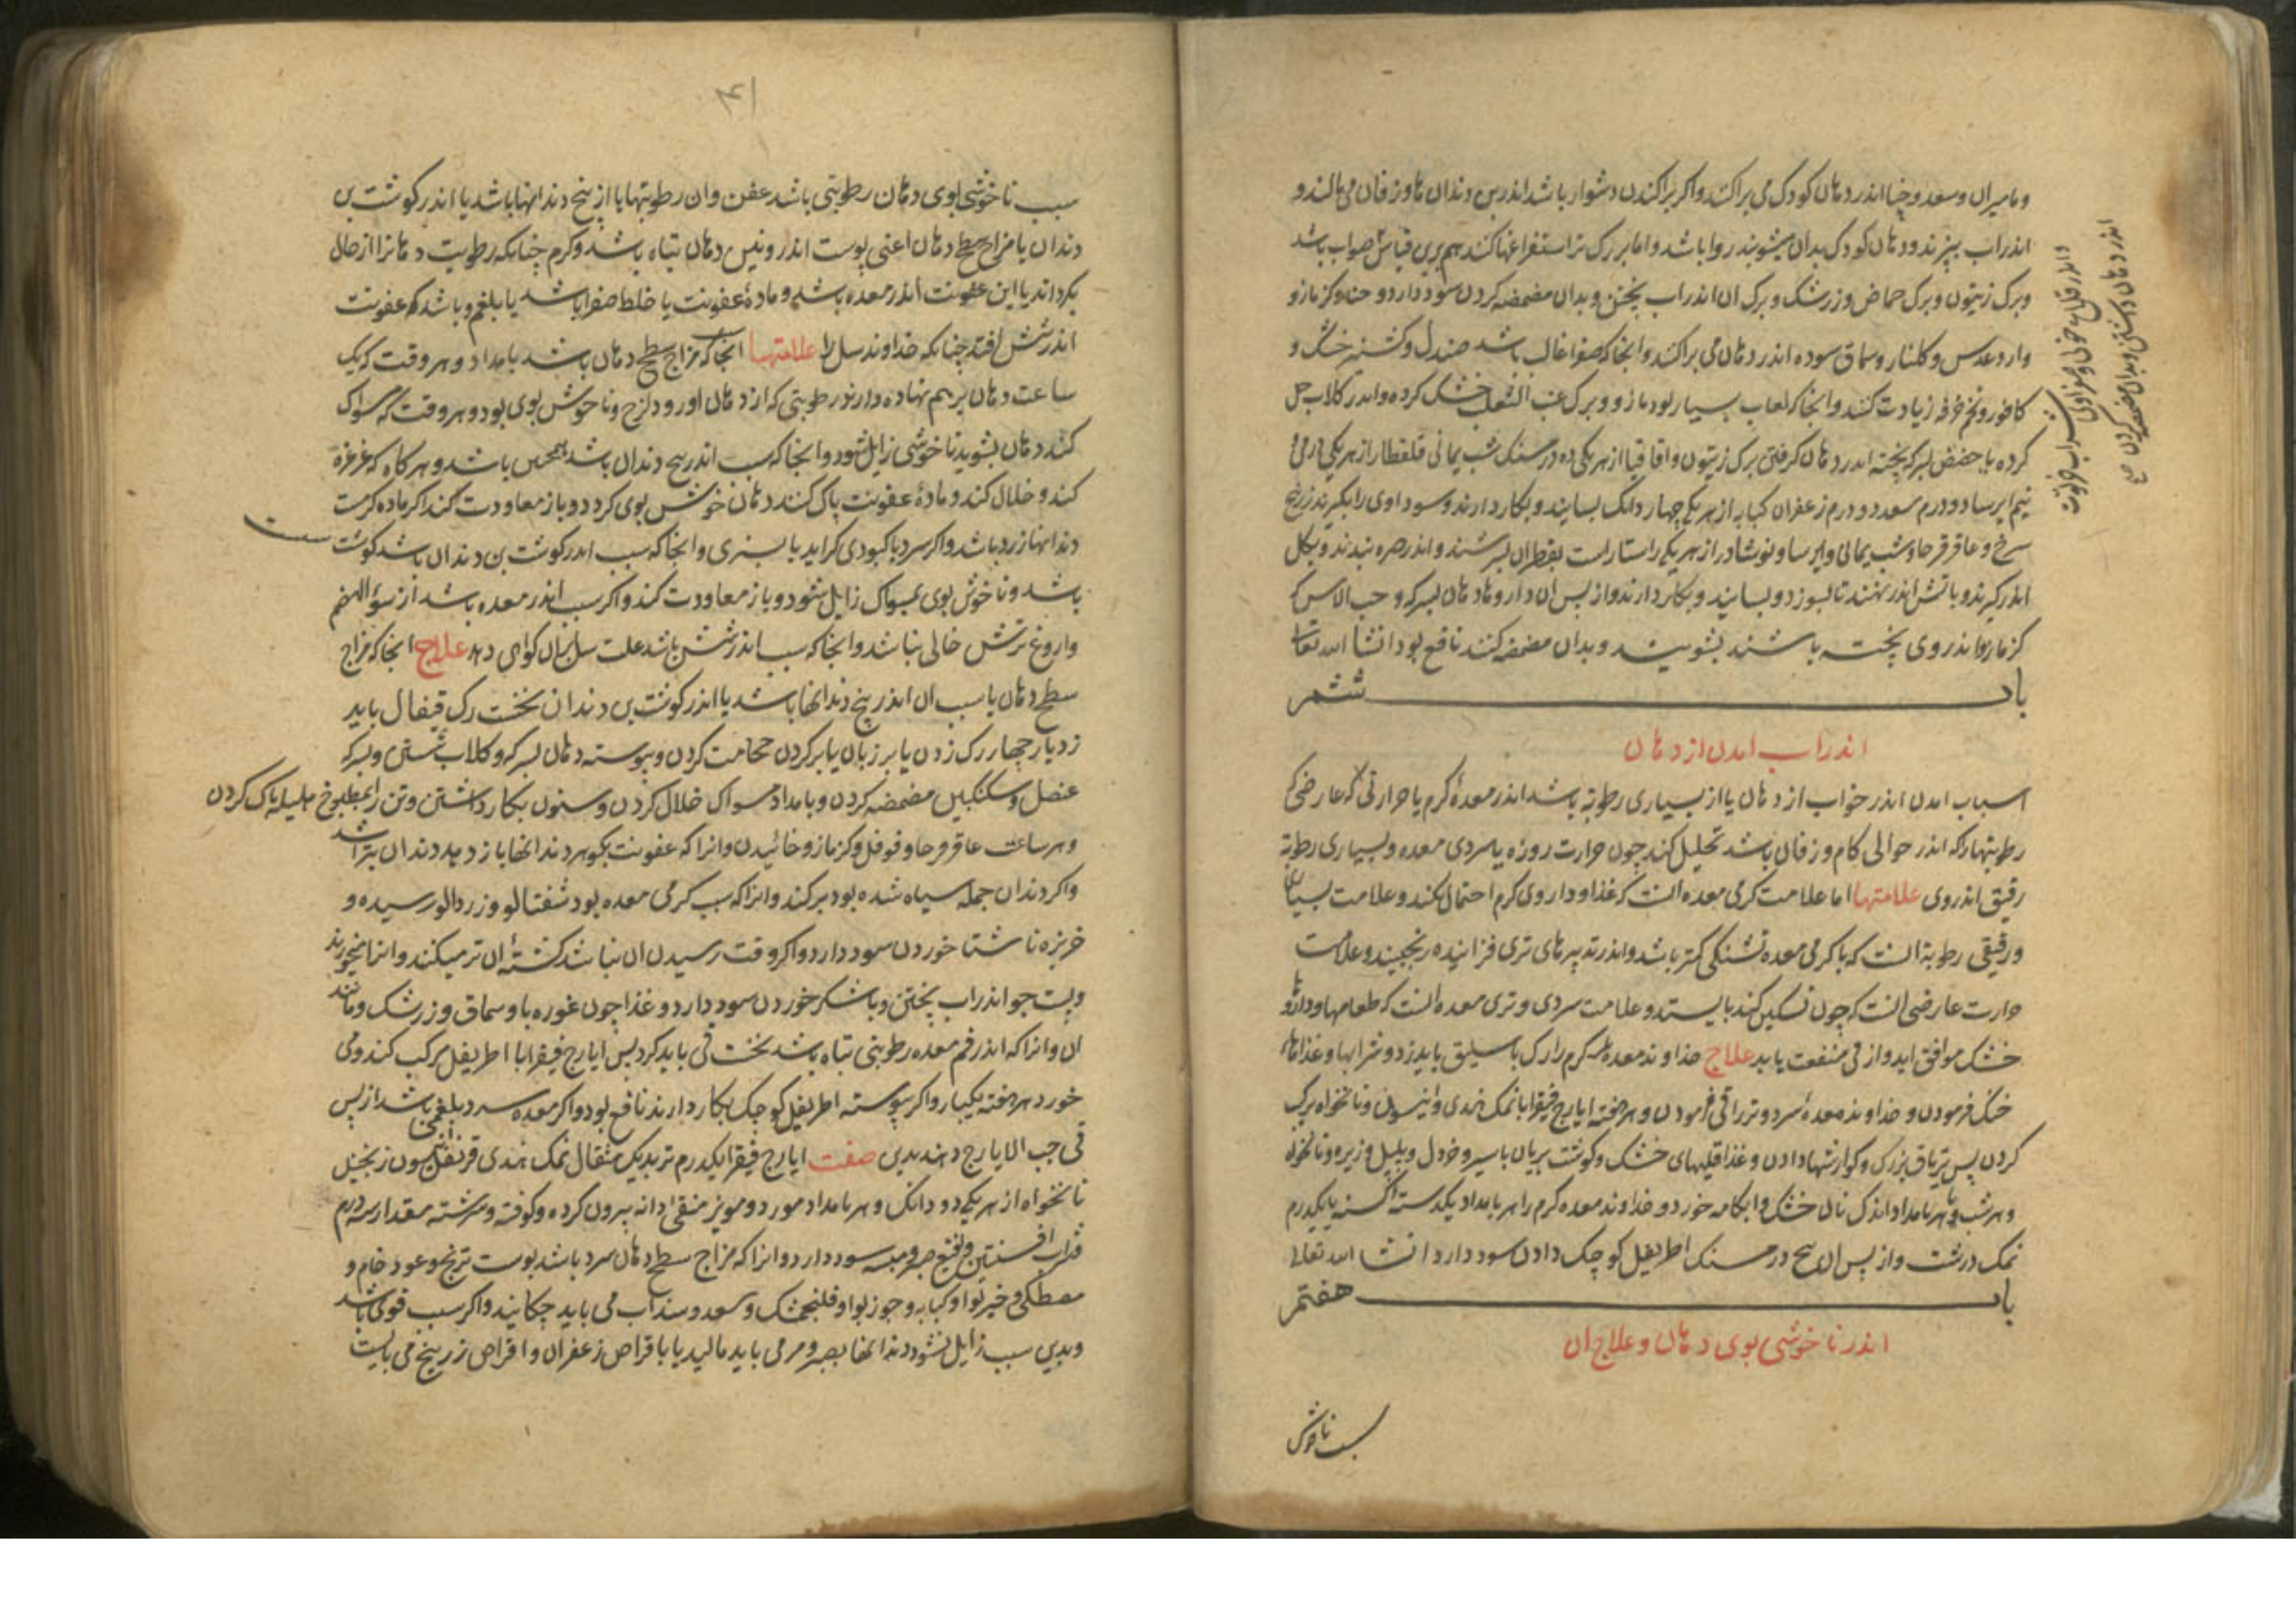 و مامیران و سعد و حنا اندر دهان کودک می پراکنند و اکر پراکندن دشوار باشد اندر بن دندان ها و زفان می مالند و
اندر اب بپزند و دهان کودک بدان میشویند روا باشد و اما بزرک تر استفراغها کنند هم برین قیاس صواب باشد
و برک زیتون و برک حماض و زرشک و برک ان اندر اب پختن و بدان مضمضه کردن سود دارد و حنا و کزمازو
و ارد عدس و کلنار و سماق سوده اندر دهان می پراکنند و انجا که صفرا غالب باشد صندل و کشنیز خشک و
کافور و تخم خرفه زیادت کنند و انجا که لعاب بسیار بود مازو و برک عنب الثعلب خشک کرده و اندر کلاب حل
کرده یا حضض بسرکه پخته اندر دهان کرفتن برک زیتون و اقاقیا از هر یکی ده درمسنک شب یمانی قلقطار از هر یکی
نیم ایرسا دو درم سعد دو درم زعفران کبابه از هر یکی چهار دانک بسایند و بکار دارند و سوداوی را بکیرند زرنیخ
سرخ و عاقرقرحا و شب یمانی و ایرسا و نوشادر از هر یکی راستا راست بقطران بسرشند و اندر صره بندند و بکل
اندر کیرند و باتش اندر نهند تا بسوزد و بسایند و بکار دارند و از پس ان دارو ها دهان بسرکه و حب الاس که
کزمازو اندر وی پخته باشند بشویند و بدان مضمضه کنند نافع بود انشا الله تعالی
باب ششم
اندر اب امدن از دهان
اسباب امدن اندر خواب از دهان یا از بسیاری رطوبة باشد اندر معدۀ کرم یا حرارتی عارضی که
رطوبتها را که اندر حوالی کام و زفان باشد تحلیل کند چون حرارت روزه یا سردی معده و بسیاری رطوبة
رقیق اندر وی علامتها اما علامت کرمی معده انست که غذا و داروی کرم احتمال نکند و علامت بسیاری
و رقیقی رطوبة انست که با کرمی معده تشنکی کمتر باشد و اندر تدبیر های تری فزاینده رنجیند و علامت
حرارت عارضی انست که چون تسکین کند بایستد و علامت سردی و تری معده انست که طعامها و داروها
خشک موافق اید و از قی منفعت یابد علاج خداوند معده کرم را رک باسلیق باید زد و شرابها و غذاهاء
خنک فرمودن و خداوند معدۀ سرد و تر را قی فرمودن و هر هفته ایارج فیقرا با نمک هندی و انیسون و نانخواه مرکب
کردن پس تریاق بزرک و کوارشها دادن و غذا قلیهای خشک و کوشت بریان با سیر و خردل و پلپل و زیره و نانخواه
و هر شب و هر بامداد اندک نان خشک و ابکامه خورد و خداوند معده کرم را هر بامداد یکدسته کسنه با یکدرم
نمک درشت و از پس ان پنج درمسنک اطریفل کوچک دادن سود دارد انشا الله تعالی
باب هفتم
اندر ناخوشی بوی دهان و علاج ان
سبب ناخوشی
اندر دهان داشتن و بدان مضمضه کردن صح
۴۱
سبب ناخوشی بوی دهان رطوبتی باشد عفن و ان رطوبتها یا از بیخ دندانها باشد یا اندر کوشت بن
دندان یا مزاج سطح دهان اعنی پوست اندرونین دهان تباه باشد و کرم چنانکه رطوبت دهان را از حال
بکرداند یا این عفونت اندر معده باشد و مادۀ عفونت یا خلط صفرا باشد یا بلغم و باشد که عفونت
اندر شش افتد چنانکه خداوند سل را علامتها انجا که مزاج سطح دهان باشد بامداد و هر وقت که یک
ساعت دهان بر هم نهاده دارند رطوبتی که از دهان او رود لزج و ناخوش بوی بود و هر وقت که مسواک
کند دهان بشوید ناخوشی زایل شود و انجا که سبب اندر بیخ دندان باشد همچنین باشد و هر کاه که غرغره
کند و خلال کند و مادۀ عفونت پاک کند دهان خوش بوی کردد و باز معاودت کند اکر ماده کرمست
دندانها زرد باشد و اکر سرد با کبودی کراید یا بسبزی و انجا که سبب اندر کوشت بن دندان باشد کوشت سست
باشد و ناخوش بوی بمسواک زایل شود و باز معاودت کند و اکر سبب اندر معده باشد از سوء الهضم
و اروغ ترش خالی نباشد و انجا که سبب اندر شش باشد علت سل بران کواهی دهد علاج انجا که مزاج
سطح دهان یا سبب ان اندر بیخ دندانها باشد یا اندر کوشت بن دندان نخست رک قیفال باید
زد یا چهار رک زدن یا بر زبان یا بر کردن حجامت کردن و پیوسته دهان بسرکه و کلاب شستن و بسرکه
عنصل و سکنکبین مضمضه کردن و بامداد مسواک خلال کردن و سنون بکار داشتن و تن را بمطبوخ هلیله پاک کردن
و هر ساعت عاقرقرحا و فوفل و کزمازو خائیدن و انرا که عفونت بکوهر دندانها باز دهد دندان بتراشد
و اکر دندان جمله سیاه شده بود برکند و انرا که سبب کرمی معده بود شفتالو و زردالو رسیده و
خربزه ناشتا خوردن سود دارد و اکر وقت رسیدن ان نباشد کشتۀ ان تر میکند و انرا میخورند
و پست جو اندر اب پختن و با شکر خوردن سود دارد و غذا چون غوره با و سماق و زرشک و مانند
ان و انرا که اندر فم معده رطوبتی تباه باشد نخست قی باید کرد پس ایارج فیقرا با اطریفل مرکب کند و می
خورد هر هفته یکبار و اکر پیوسته اطریفل کوچک بکار دارند نافع بود و اکر معده سرد بلغمی باشد از پس
قی حب الایارج دهند بدین صفت ایارج فیقرا یکدرم تربد یک مثقال نمک هندی قرنفل انیسون زنجبیل
نانخواه از هر یکی دو دانک و هر بامداد مورد و مویز منقی دانه بیرون کرده و کوفته و سرشته مقدار سه درم
شراب افسنتین و نقیع صبر و میبه سود دارد و انرا که مزاج سطح دهان سرد باشد پوست ترنج و عود خام و
مصطکی و خیربوا و کبابه و جوزبوا و فلنجمشک و سعد و سنداب می باید چکانید و اکر سبب قوی باشد
و بدین سبب زایل نشود دندانها بصبر و مر می باید مالید یا باقراص زعفران و اقراص زرنیخ می بایست